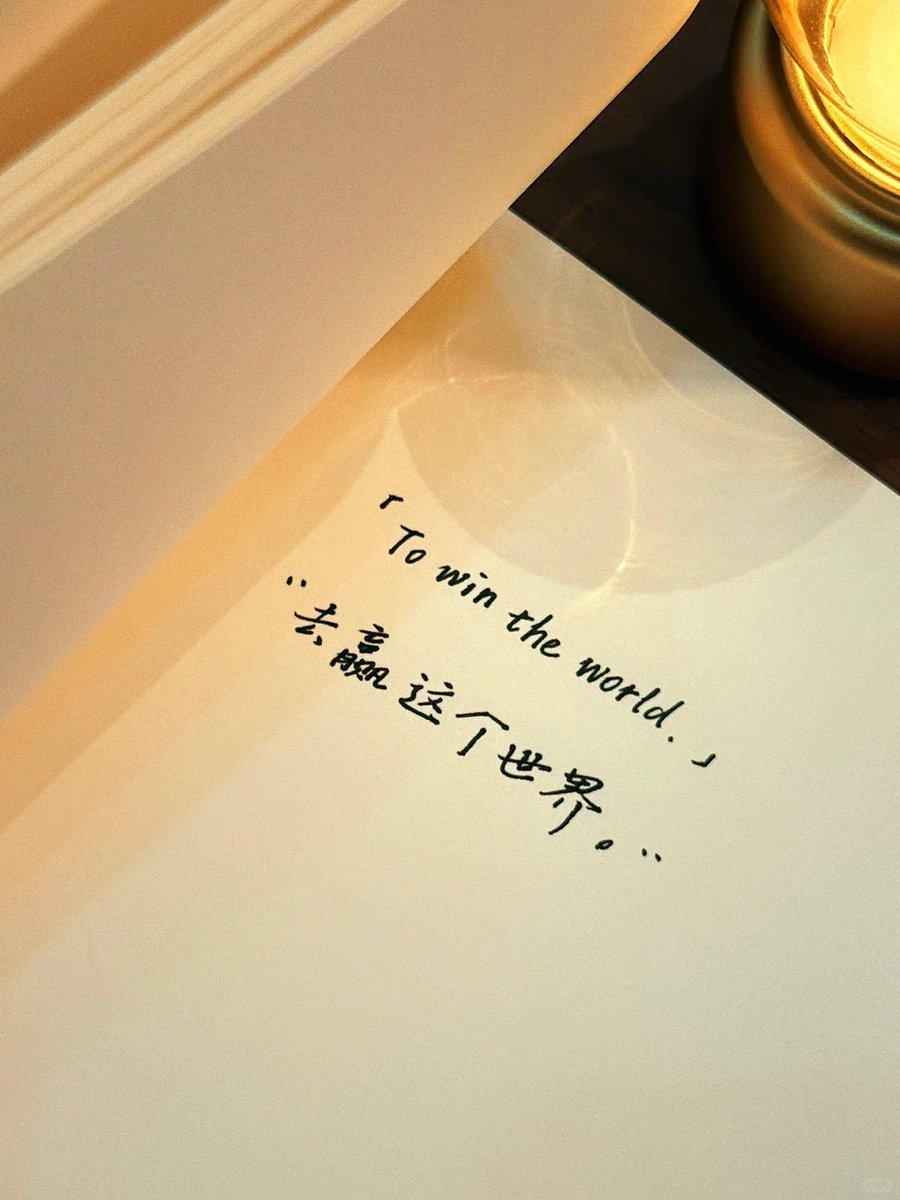 「To win the world.」
"去赢这个世界。"